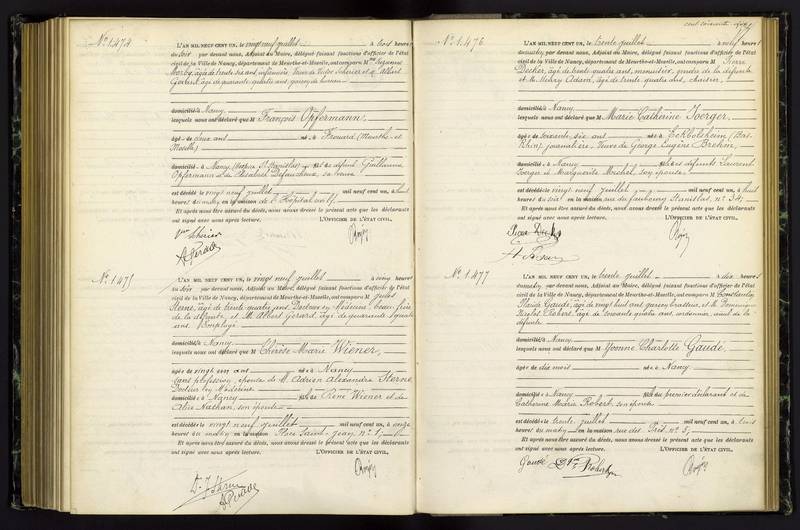 N° 1474
L'AN MIL NEUF CENT UN, le vingt neuf juillet à trois heures
du soir par devant nous, Adjoint au Maire, délégué faisant fonctions d'officier de l'état
civil de la Ville de Nancy, département de Meurthe-et-Moselle, ont comparu M
âgé de trente six ans, Veuve de Victor Scherier et Albert
Gérard, âgé de quarante quatre ans, garçon de bureau
domiciliés Nancy
lesquels nous ont déclaré que M François Opfermann,
âgé de deux ans né à Frouard (Meurthe-et-
Moselle)
domicilié à Nancy fils de défunt Guillaume
Opfermann et de sa veuve
est décédé le vingt neuf juillet mil neuf cent un, à huit
heures du matin en la maison de l'hôpital civil
Et après nous être assuré du décès, nous avons dressé le présent acte que les déclarants
ont signé avec nous après lecture. L'OFFICIER DE L'ÉTAT CIVIL,
N° 1475
L'AN MIL NEUF CENT UN, le vingt neuf juillet à cinq heures
du soir par devant nous, Adjoint au Maire, délégué faisant fonctions d'officier de l'état
civil de la Ville de Nancy, département de Meurthe-et-Moselle, ont comparu M Jules
Sterne, âgé de trente quatre ans, Docteur en Médecine, beau frère
de la défunte et M. Albert Gérard, âgé de quarante quatre
ans, Employé
domiciliés Nancy
lesquels nous ont déclaré que M Thérèse Marie Wiener,
âgée de vingt cinq ans née à Nancy
sans profession, épouse de M. Adrien Alexandre Sterne,
Docteur en Médecine
domiciliée à Nancy fille de René Wiener et de
Alice Nathan, son épouse
est décédée le vingt neuf juillet mil neuf cent un, à onze
heures du matin en la maison Place Saint Jean, n° 1,
Et après nous être assuré du décès, nous avons dressé le présent acte que les déclarants
ont signé avec nous après lecture. L'OFFICIER DE L'ÉTAT CIVIL,
Dr J Sterne
N° 1476
L'AN MIL NEUF CENT UN, le trente juillet à neuf heures
du matin par devant nous, Adjoint au Maire, délégué faisant fonctions d'officier de l'état
civil de la Ville de Nancy, département de Meurthe-et-Moselle, ont comparu M Pierre
Decker, âgé de trente quatre ans, menuisier, gendre de la défunte
et M. Henry Adam, âgé de trente quatre ans,
domiciliés Nancy
lesquels nous ont déclaré que M Marie Catherine Joerger,
âgée de soixante dix ans née à Eckbolsheim (Bas-
Rhin), journalière, Veuve de George Eugène Brehm,
domiciliée à Nancy fille des défunts Laurent
Joerger et Marguerite Michel, son épouse,
est décédée le vingt neuf juillet mil neuf cent un, à huit
heures du soir en la maison rue du faubourg Stanislas, n° 34,
Et après nous être assuré du décès, nous avons dressé le présent acte que les déclarants
ont signé avec nous après lecture. L'OFFICIER DE L'ÉTAT CIVIL,
N° 1477
L'AN MIL NEUF CENT UN, le trente juillet à dix heures
du matin par devant nous, Adjoint au Maire, délégué faisant fonctions d'officier de l'état
civil de la Ville de Nancy, département de Meurthe-et-Moselle, ont comparu M
Gaudé, âgé de vingt huit ans, garçon brasseur, et M. Dominique
Nicolas Robert, âgé de soixante quatre ans, cordonnier, aïeul de la
défunte
domiciliés Nancy
lesquels nous ont déclaré que M Yvonne Charlotte Gaudé,
âgée de dix mois née à Nancy
domiciliée à Nancy fille du premier déclarant et de
Catherine Marie Robert, son épouse
est décédée le trente juillet mil neuf cent un, à trois
heures du matin en la maison rue des Prés n° 5,
Et après nous être assuré du décès, nous avons dressé le présent acte que les déclarants
ont signé avec nous après lecture. L'OFFICIER DE L'ÉTAT CIVIL,
Gaudé Robert